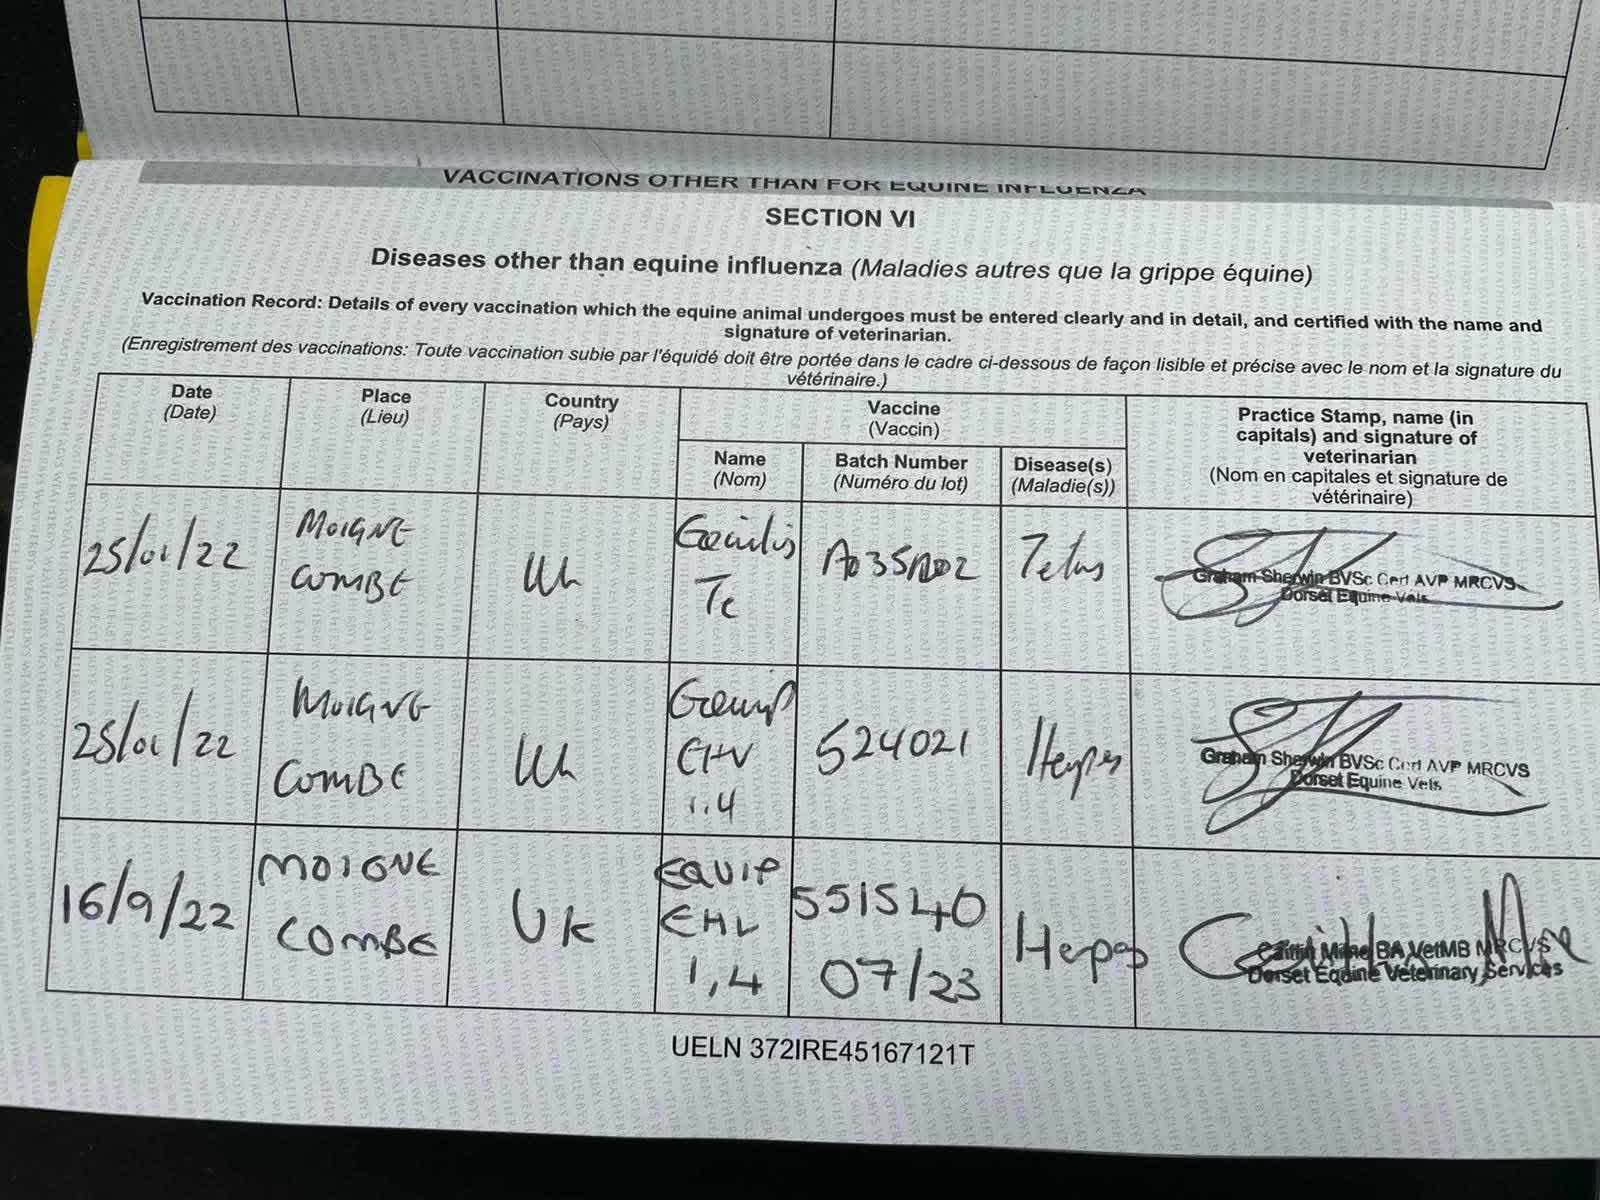 VACCINATIONS OTHER THAN FOR EQUINE INFLUENZA
SECTION VI
Diseases other than equine influenza (Maladies autres que la grippe équine)
Vaccination Record: Details of every vaccination which the equine animal undergoes must be entered clearly and in detail, and certified with the name and
signature of veterinarian.
(Enregistrement des vaccinations: Toute vaccination subie par l'équidé doit être portée dans le cadre ci-dessous de façon lisible et précise avec le nom et la signature du
vétérinaire.)
Date
(Date)
Place
(Lieu)
Country
(Pays)
Vaccine
(Vaccin)
Name
(Nom)
Batch Number
(Numéro du lot)
Disease(s)
(Maladie(s))
Practice Stamp, name (in
capitals) and signature of
veterinarian
(Nom en capitales et signature de
vétérinaire)
25/01/22
MOIGNE
COMBE
Uk
Te
Graham Sherwin BVSc Cert AVP MRCVS
Dorset Equine Vets
25/01/22
MOIGNE
COMBE
Uk
EHV
1.4
524021
Graham Sherwin BVSc Cert AVP MRCVS
Dorset Equine Vets
16/9/22
MOIGNE
COMBE
Uk
EQUIP
EHV
1,4
551540
07/23
Caitlin Milne BA VetMB MRCVS
Dorset Equine Veterinary Services
UELN 372IRE45167121T